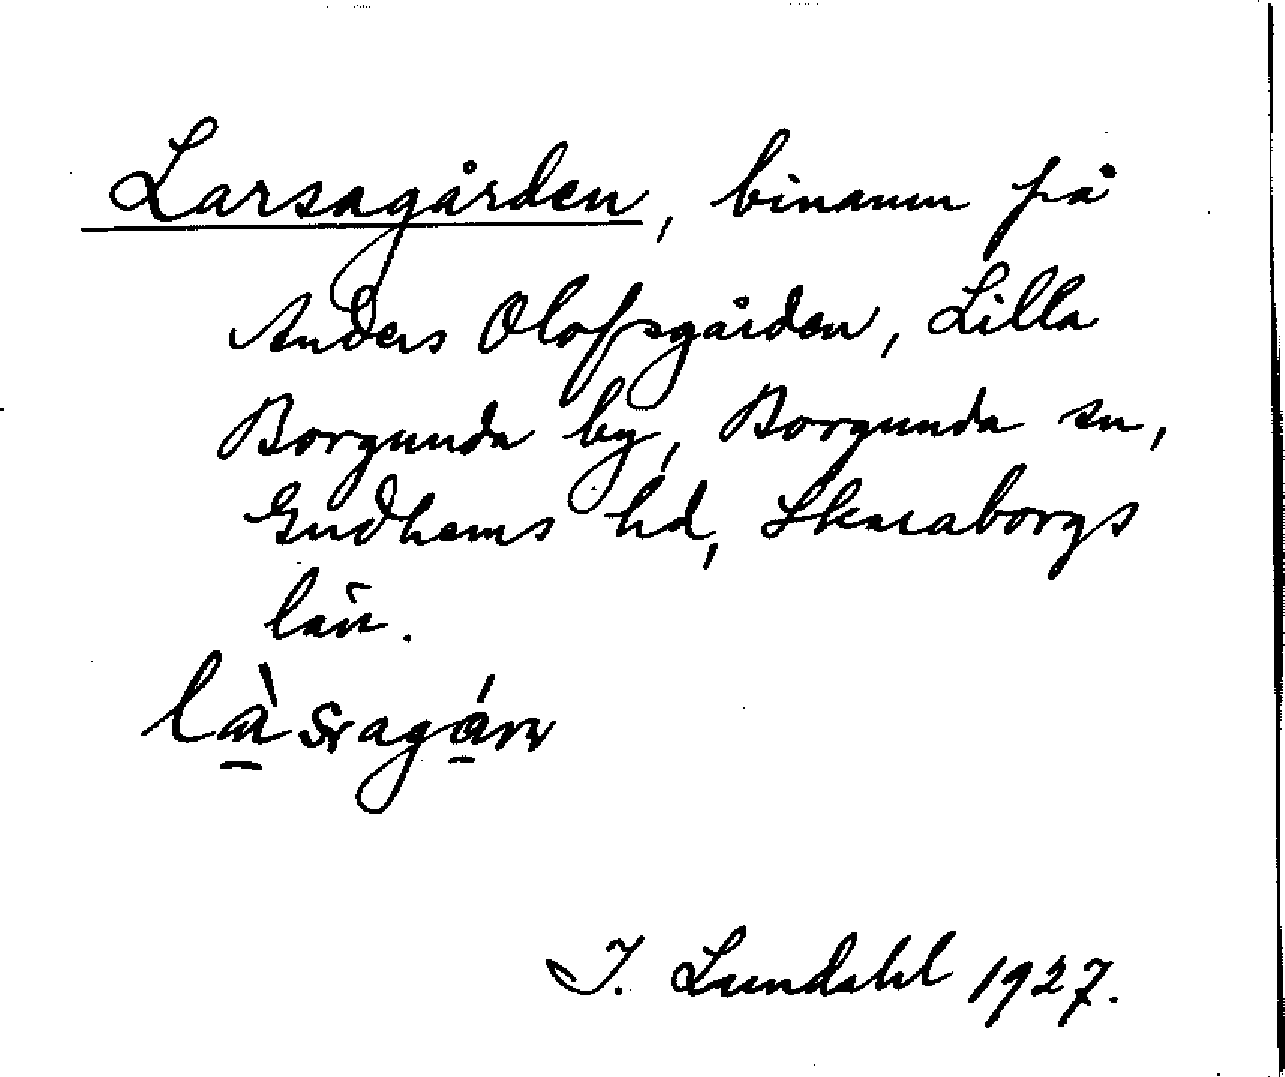 Larsagården, binamn på
Anders Olofsgården, Lilla
Borgunda by, Borgunda sn,
Gudhems hd, Skaraborgs
län.
I. Lundahl 1927.